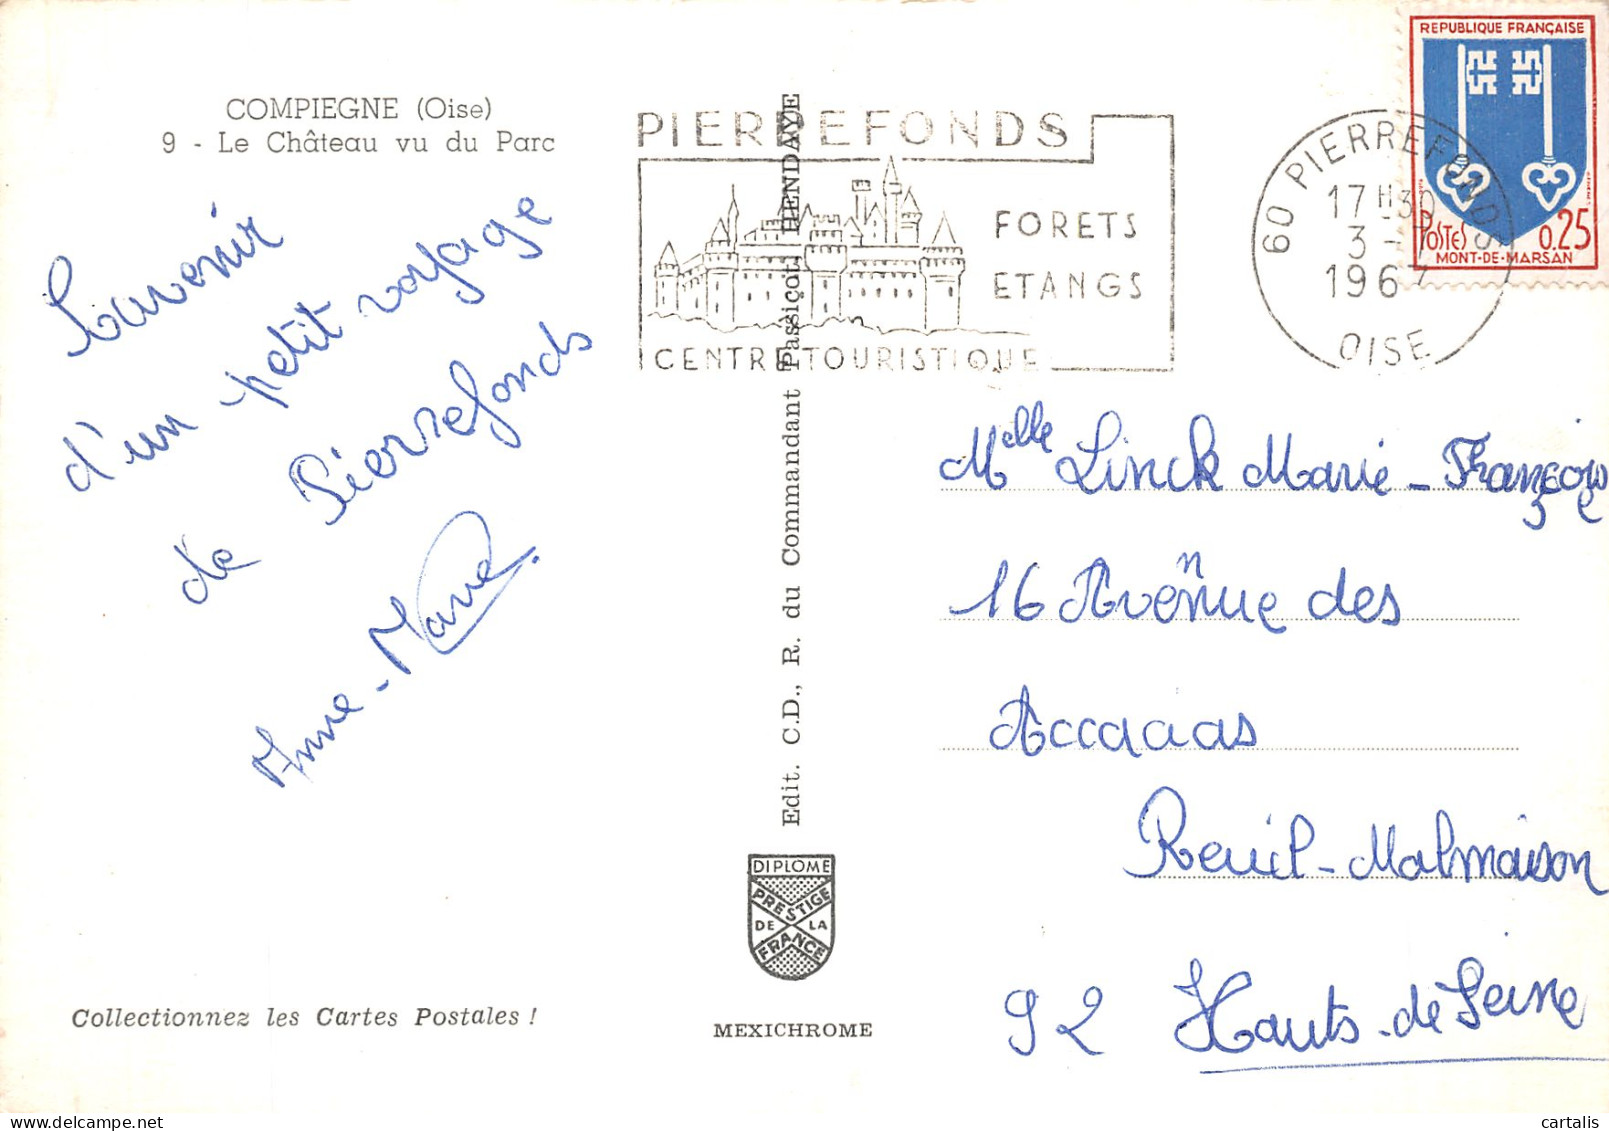 COMPIEGNE (Oise)
9 - Le Château vu du Parc
Souvenir
d'un petit voyage
de Pierrefonds
Anne-Marie
Collectionnez les Cartes Postales !
PIERREFONDS
FORETS
ETANGS
CENTRE TOURISTIQUE
Edit. C.D., R. du Commandant Passicot HENDAYE
DIPLOME
PRESTIGE
DE LA
FRANCE
MEXICHROME
60 PIERREFONDS
17 H 30
3 -
1967
OISE
REPUBLIQUE FRANÇAISE
POSTES
0,25
MONT-DE-MARSAN
Melle Linck Marie-Françoise
16 Avenue des
Accaaas
Reuil-Malmaison
92 Hauts-de Seine
cartalis